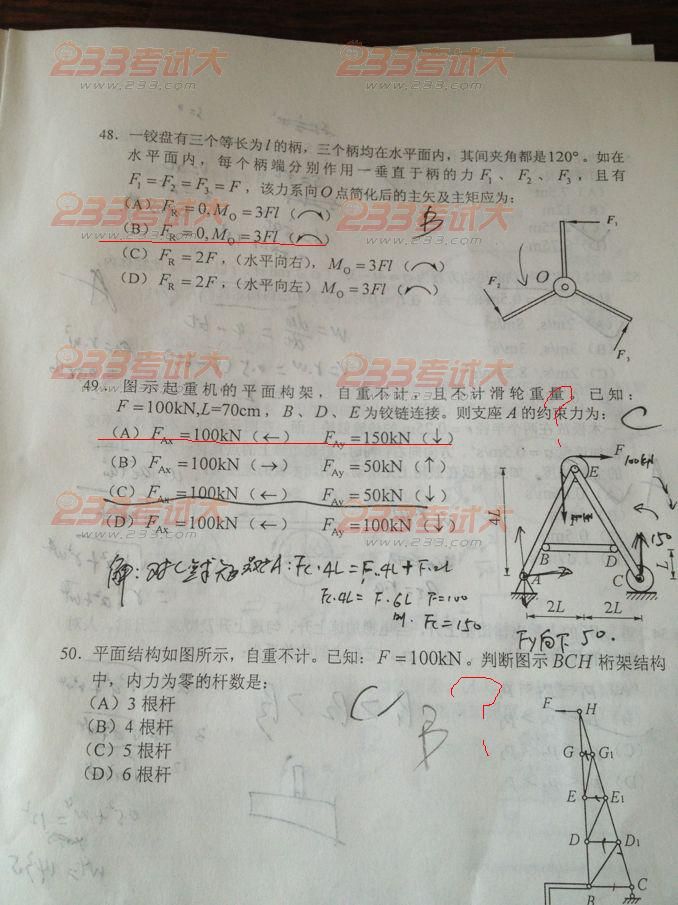 233考试大 233考试大
www.233.com www.233.com
48. 一铰盘有三个等长为l的柄，三个柄均在水平面内，其间夹角都是120°。如在
水平面内，每个柄端分别作用一垂直于柄的力F₁、F₂、F₃，且有
F₁=F₂=F₃=F，该力系向O点简化后的主矢及主矩应为：
(A) F_R=0, M_O=3Fl（↷）
(B) F_R=0, M_O=3Fl（↶） B
(C) F_R=2F，(水平向右)，M_O=3Fl（↷）
(D) F_R=2F，(水平向左) M_O=3Fl（↶）
F₁
F₂ O
F₃
49. 图示起重机的平面构架，自重不计，且不计滑轮重量，已知：
F=100kN, L=70cm，B、D、E为铰链连接。则支座A的约束力为： C
(A) F_Ax=100kN（←） F_Ay=150kN（↓）
(B) F_Ax=100kN（→） F_Ay=50kN（↑）
(C) F_Ax=100kN（←） F_Ay=50kN（↓）
(D) F_Ax=100kN（←） F_Ay=100kN（↓）
F 100kN
E
4L
150
B D
A C L
2L 2L
Fc·4L=F·4L+F·2L
Fc·4L=F·6L F=100
则·Fc=150
Fy向下50.
50. 平面结构如图所示，自重不计。已知：F=100kN。判断图示BCH桁架结构
中，内力为零的杆数是：
(A) 3根杆
(B) 4根杆 C B
(C) 5根杆
(D) 6根杆
F H
G G₁
E E₁
D D₁
B C